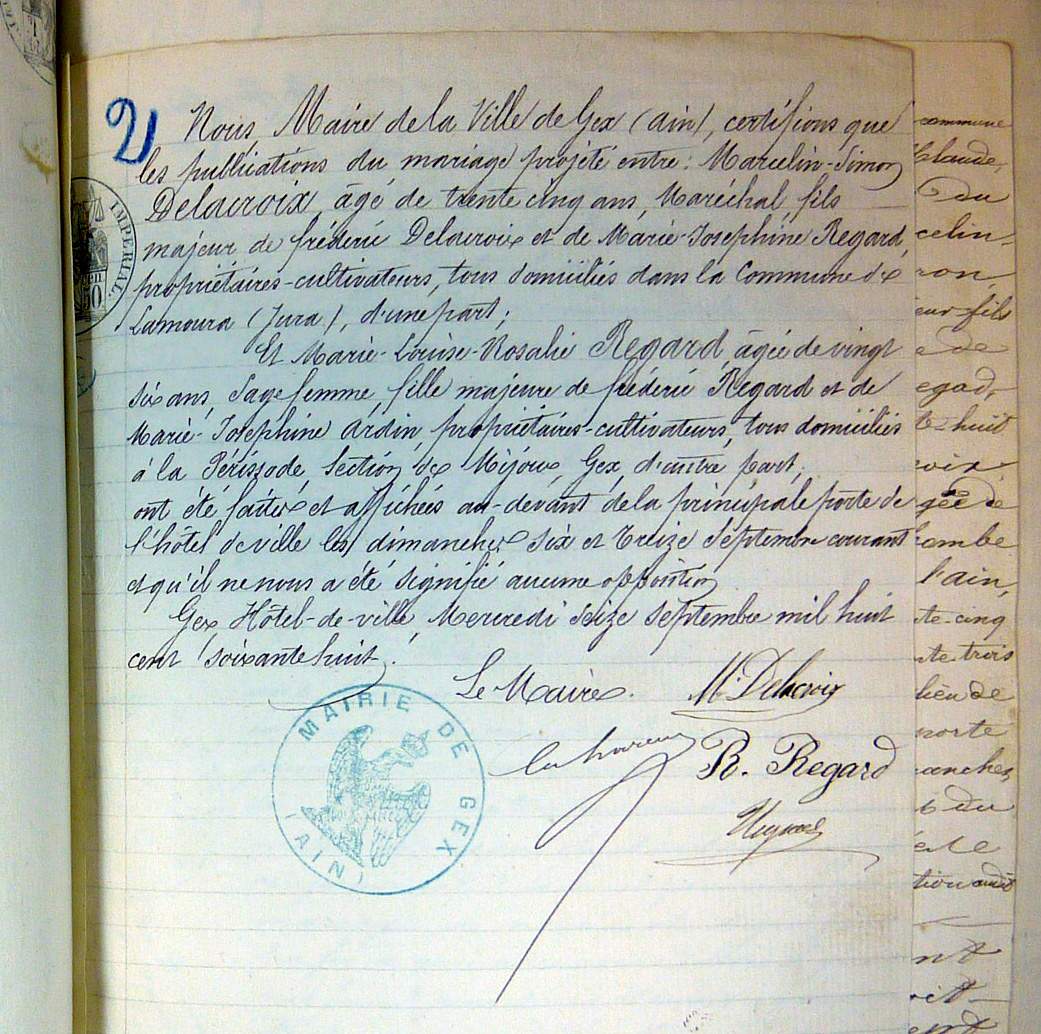 2
Nous Maire de la Ville de Gex (ain), certifions que
les publications du mariage projété entre: Marcelin-Simon
Delacroix, âgé de trente cinq ans, Maréchal, fils
majeur de fréderic Delacroix et de Marie-Josephine Regard,
propriétaires-cultivateurs, tous domiciliés dans la Commune de
Lamoura (Jura), d'une part;
Et Marie-Louise-Rosalie Regard, âgée de vingt
six ans, Sage femme, fille majeure de fréderic Regard et de
Marie-Josephine Ardin, propriétaires-cultivateurs, tous domiciliés
à la Section de Mijoux, Gex, d'autre part,
ont été faites et affichées au-devant de la principale porte de
l'hôtel de ville les dimanches Six et Treize Septembre courant
et qu'il ne nous a été signifié aucune opposition
Gex, Hôtel-de-ville, Mercredi Seize Septembre mil huit
cent soixante huit.
Le Maire. M. Delacroix
R. Regard
MAIRIE DE GEX
(AIN)
IMPERIAL
50
commune
Claude,
du
celin-
ron,
eur fils
de
egad,
huit
roix
gée de
combe
l'ain,
te-cinq
te trois
lieu de
porte
anches
du
été
tion